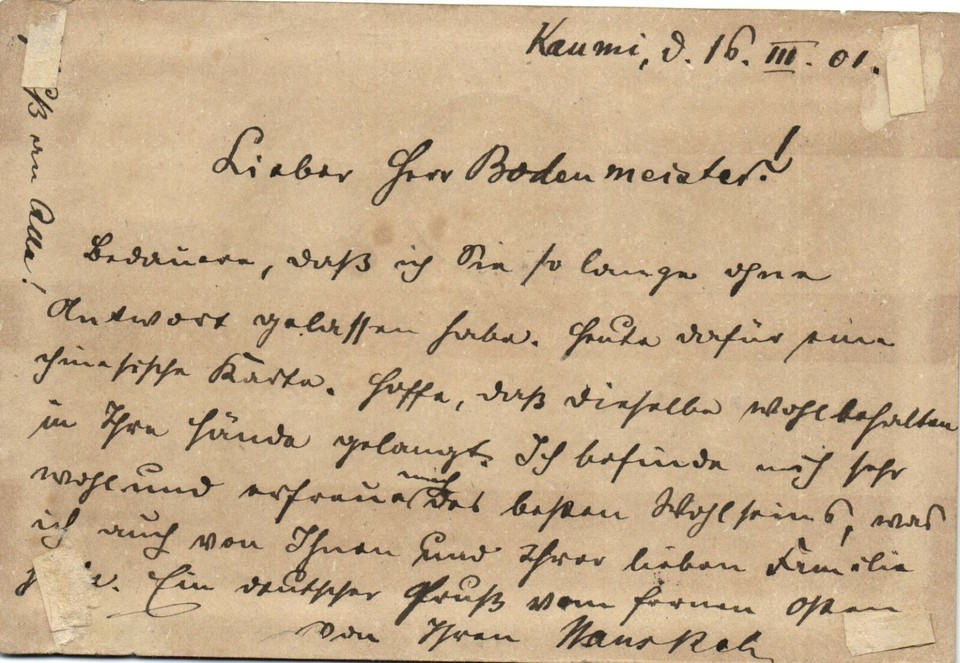 Kaumi, d. 16. III. 01.
Lieber Herr Bodenmeister!
Bedauere, daß ich Sie so lange ohne
Antwort gelassen habe. Heute dafür eine
chinesische Karte. Hoffe, daß dieselbe wohlbehalten
in Ihre Hände gelangt. Ich befinde mich sehr
wohl und erfreue mich des besten Wohlseins, was
ich auch von Ihnen und Ihrer lieben Familie
Ein deutscher Gruß vom fernen Osten
von Ihren
an Alle!